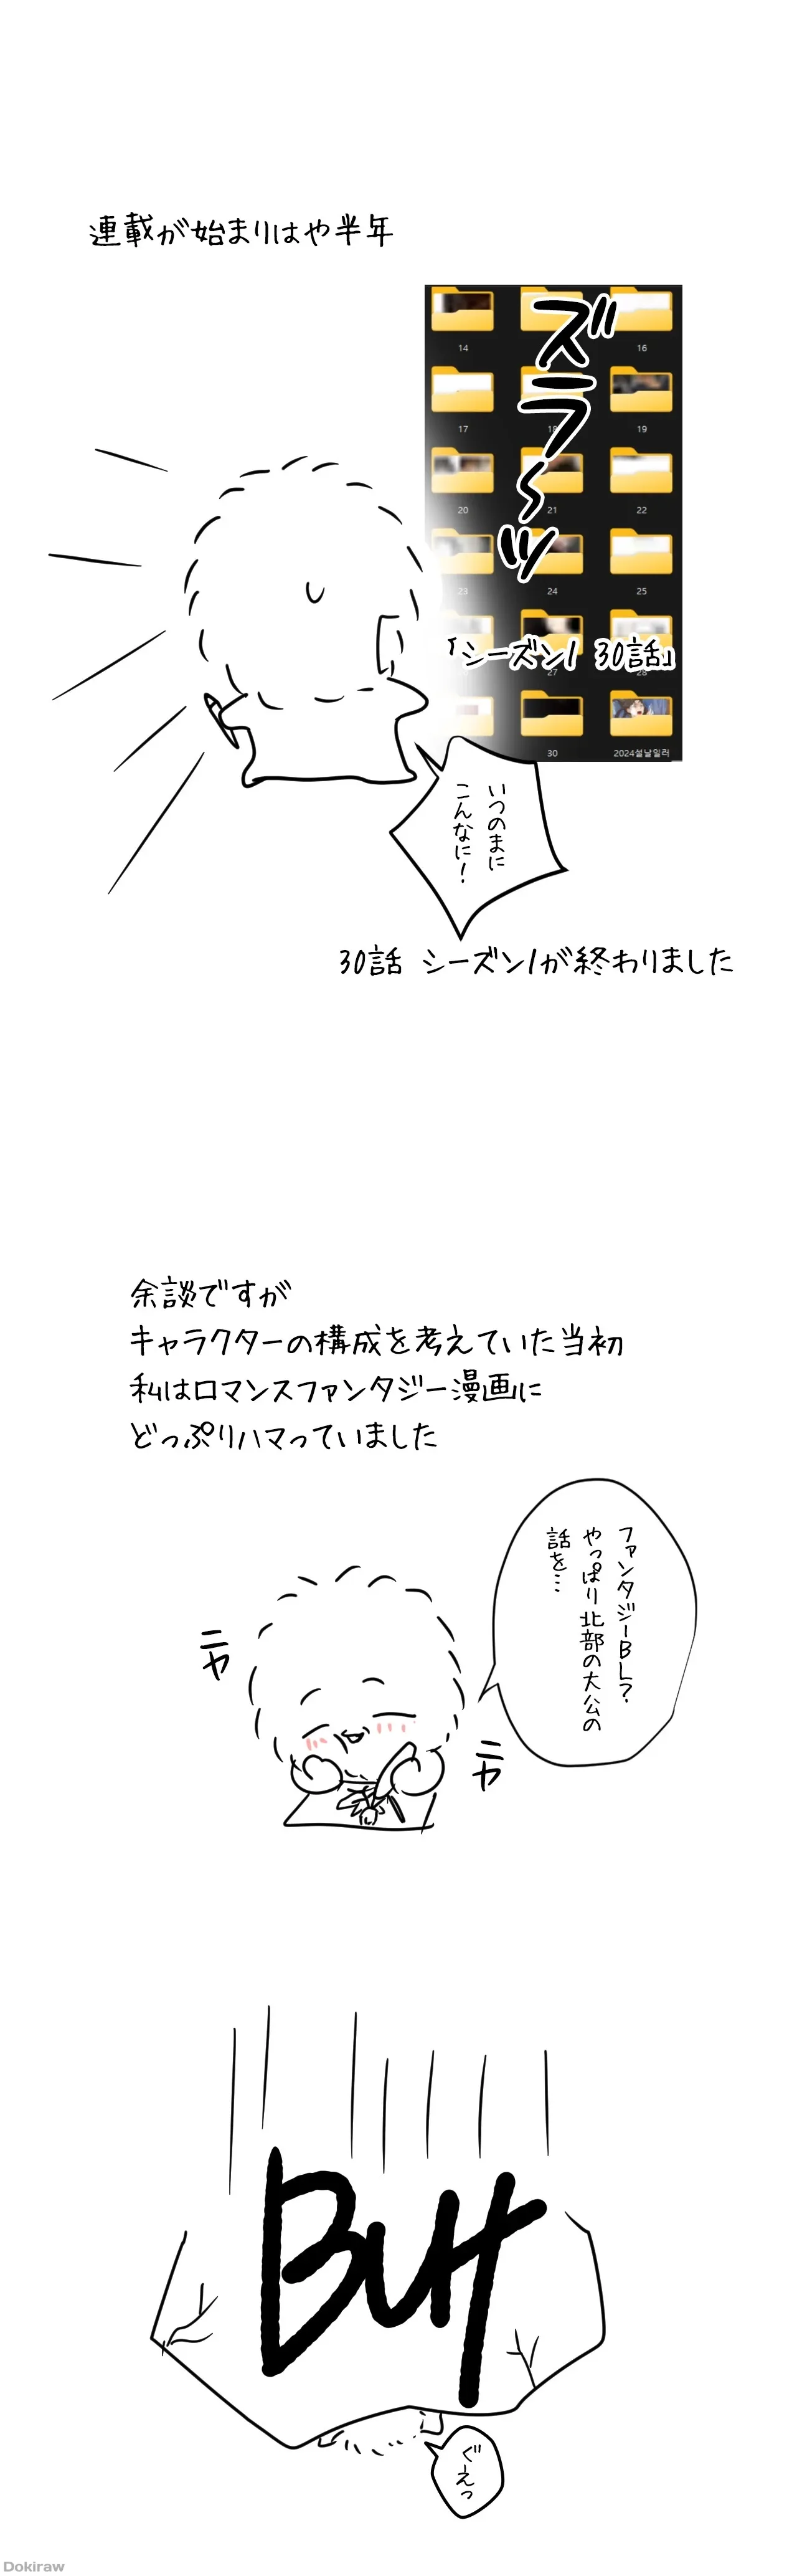 連載が始まりはや半年
ズラ〜ッ
14
16
17
18
19
20
21
22
23
24
25
「シーズン1 30話」
27
28
30
2024설날일러
いつのまに
こんなに!
30話 シーズン1が終わりました
余談ですが
キャラクターの構成を考えていた当初
私はロマンスファンタジー漫画に
どっぷりハマっていました
ファンタジーBL?
やっぱり北部の大公の
話を…
ニヤ
ニヤ
BUt
ぐえっ
Dokiraw